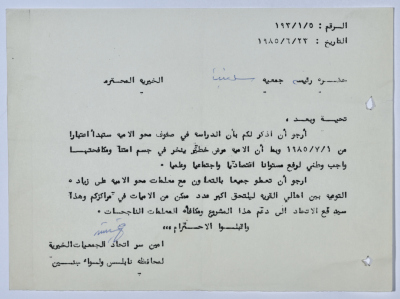 الرقم : ١٩٣/١/٥
التاريخ : ١٩٨٥/٦/٢٣
حضرة رئيس جمعية الخيرية المحترم
تحية وبعد ،
أرجو أن اذكر لكم بأن الدراسة في صفوف محو الامية ستبدأ اعتبارا
من ١٩٨٥/٧/١ وبما أن الامية مرض خطير ينخر في جسم امتنا ومكافحتها
واجب وطني لرفع مستوانا اقتصاديا واجتماعيا وعلميا .
ارجو أن تعملو جميعا بالتعاون مع معلمات محو الامية على زيادة
التوعية بين اهالي القرية ليلتحق اكبر عدد ممكن من الاميات في مراكزكم وهذا
سيدفع الاتحاد الى دعم هذا المشروع ومكافأة المعلمات الناجحات .
واقبلوا الاحترام ،،،
امين سر اتحاد الجمعيات الخيرية
لمحافظة نابلس ولواء جنين